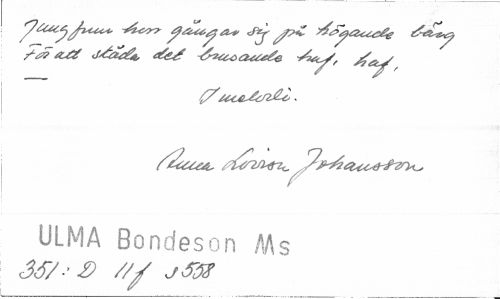 Jungfrun hon gångar sig på högande bärg
För att skåda det brusande haf, haf,
—
I melodi.
Anna Lovisa Johansson
ULMA Bondeson Ms
351: D 11 f s 558